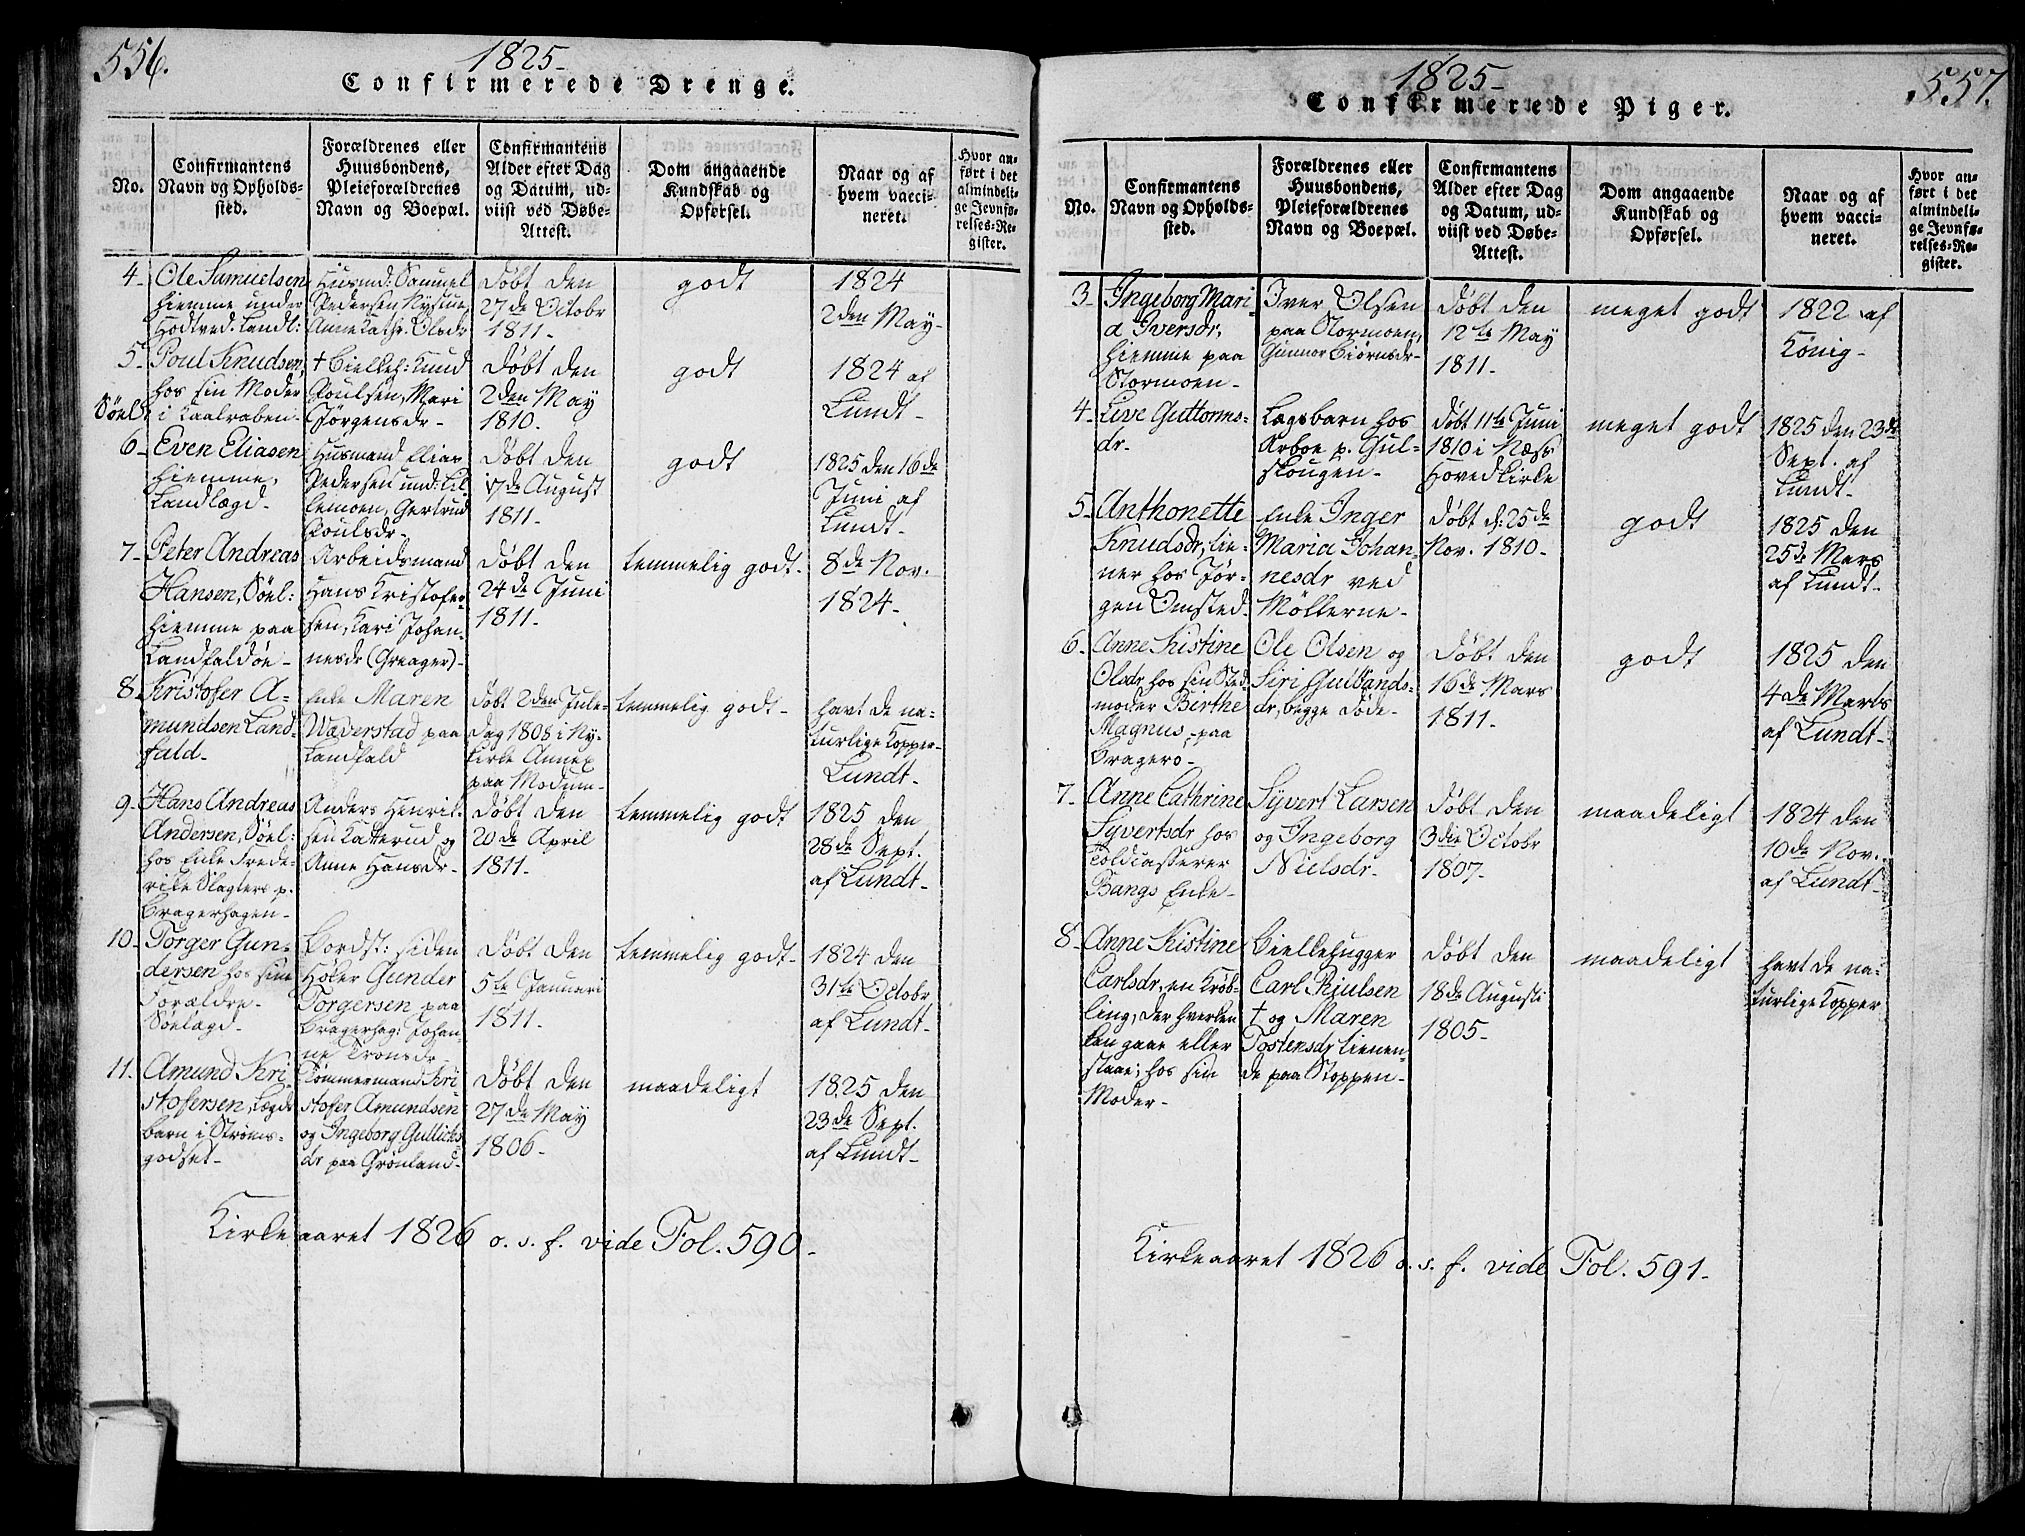 556.
1825-
Confirmerede Drenge.
No.
Confirmantens
Navn og Opholds-
sted.
Forældrenes eller
Huusbondens,
Pleieforældrenes
Navn og Boepæl.
Confirmantens
Alder efter Dag
og Datum, ud-
viist ved Døbe-
Attest.
Dom angaaende
Kundskab og
Opførsel.
Naar og af
hvem vacci-
neret.
Hvor an-
ført i det
almindeli-
ge Jevnfø-
relses-Re-
gister.
4-
Ole Samuelsen
hiemme under
Hodtved. Landl:
Husmd: Samuel
Pedersen Nystue,
Anne Kathr. Olsdr
Døbt den
27de Octobr
1811-
godt
1824
2den May-
5-
Poul Knudsen,
hos sin Moder
Søel:
i Kaalraben-
+ Biellkh: Knud
Poulsen, Mari
Jørgensdr-
Døbt den
2den May
1810-
godt
1824 af
Lundt-
6-
Even Eliasen
hiemme,
Landlægd-
Husmand Elias
Pedersen und: Lil-
lemoen, Gertrud
Poulsdr-
Døbt den
17de August
1811-
godt
1825 den 16de
Juni af
Lundt-
7-
Peter Andreas
Hansen, Søel:
hiemme paa
Landfaldøe-
Arbeidsmand
Hans Kristofer-
sen, Kari Johan-
nesdr (Greager)-
Døbt den
24de Juni
1811-
temmelig godt-
8de Nov.
1824-
8-
Kristofer A-
mundsen Land-
fald-
Enke Maren
Wæverstad paa
Landfald
Døbt 2den Jule-
dag 1808 i Ny-
kirke Annex
paa Modum-
temmelig godt-
havt de na-
turlige Kopper-
Lundt-
9-
Hans Andreas
Andersen, Søel:
hos Enke Frede-
rikke Slagters p.
Bragerhagen-
Anders Henrik-
sen Katterud og
Anne Hansdr-
Døbt den
20de April
1811-
temmelig godt
1825 den
28de Sept.
af Lundt-
10-
Torger Gun-
dersen hos sine
Forældre-
Søelægd-
Bordst: siden
Høker Gunder
Torgersen paa
Bragerhag: Johan-
ne Tronsdr-
Døbt den
5te Januari
1811-
temmelig godt-
1824 den
31te Octobr
af Lundt-
11-
Amund Kri-
stofersen, Lægde
barn i Strøms-
godset-
Tømmermand Kri
stofer Amundsen
og Ingeborg Gullichs
dr paa Grønland-
Døbt den
27de May
1806-
maadeligt
1825 den
23de Sept.
af Lundt-
Kirkeaaret 1826 o. s. f. vide Fol. 590-
557.
1825-
Confirmerede Piger.
No.
Confirmantens
Navn og Opholds-
sted.
Forældrenes eller
Huusbondens,
Pleieforældrenes
Navn og Boepæl.
Confirmantens
Alder efter Dag
og Datum, ud-
viist ved Døbe-
Attest.
Dom angaaende
Kundskab og
Opførsel.
Naar og af
hvem vacci-
neret.
Hvor an-
ført i det
almindeli-
ge Jevnfø-
relses-Re-
gister.
3-
Ingeborg Mari-
a Iversdr,
hiemme paa
Stormoen-
Iver Olsen
paa Stormoen,
Gunnor Biørnsdr-
Døbt den
12te May
1811-
meget godt
1822 af
König-
4-
Live Guttorms-
dr-
Lægsbarn hos
Arboe p. Gul-
skougen-
Døbt 11te Juni
1810 i Næss
Hovedkirke
meget godt
1825 den 23de
Sept. af
Lundt-
5-
Anthonette
Knudsdr, tie-
ner hos Jør-
gen Omsted-
Enke Inger
Maria Johan-
nesdr ved
Møllerne-
Døbt d: 25de
Nov. 1810-
godt
1825 den
25de Mars
af Lundt-
6-
Anne Kistine
Olsdr hos sin Sted
moder Birthe
Magnus, paa
Bragerø-
Ole Olsen og
Siri Gulbrands-
dr, begge døde-
Døbt den
16de Mars
1811-
godt
1825 den
4de Marts
af Lundt-
7-
Anne Cathrine
Syvertsdr hos
Toldcasserer
Bangs Enke-
Syvert Larsen
og Ingeborg
Nielsdr-
Døbt den
3die Octobr
1807-
maadeligt
1824 den
10de Nov.
af Lundt-
8-
Anne Kistine
Carlsdr, en Krøb-
ling, der hverken
kan gaae eller
staae; hos sin
Moder-
Biellkehugger
Carl Kiulsen
+ og Maren
Tostensdr tienen-
de paa Stoppen-
Døbt den
18de Augusti
1805-
maadeligt
havt de na-
turlige Kopper
Kirkeaaret 1826 o. s. f. vide Fol. 591-